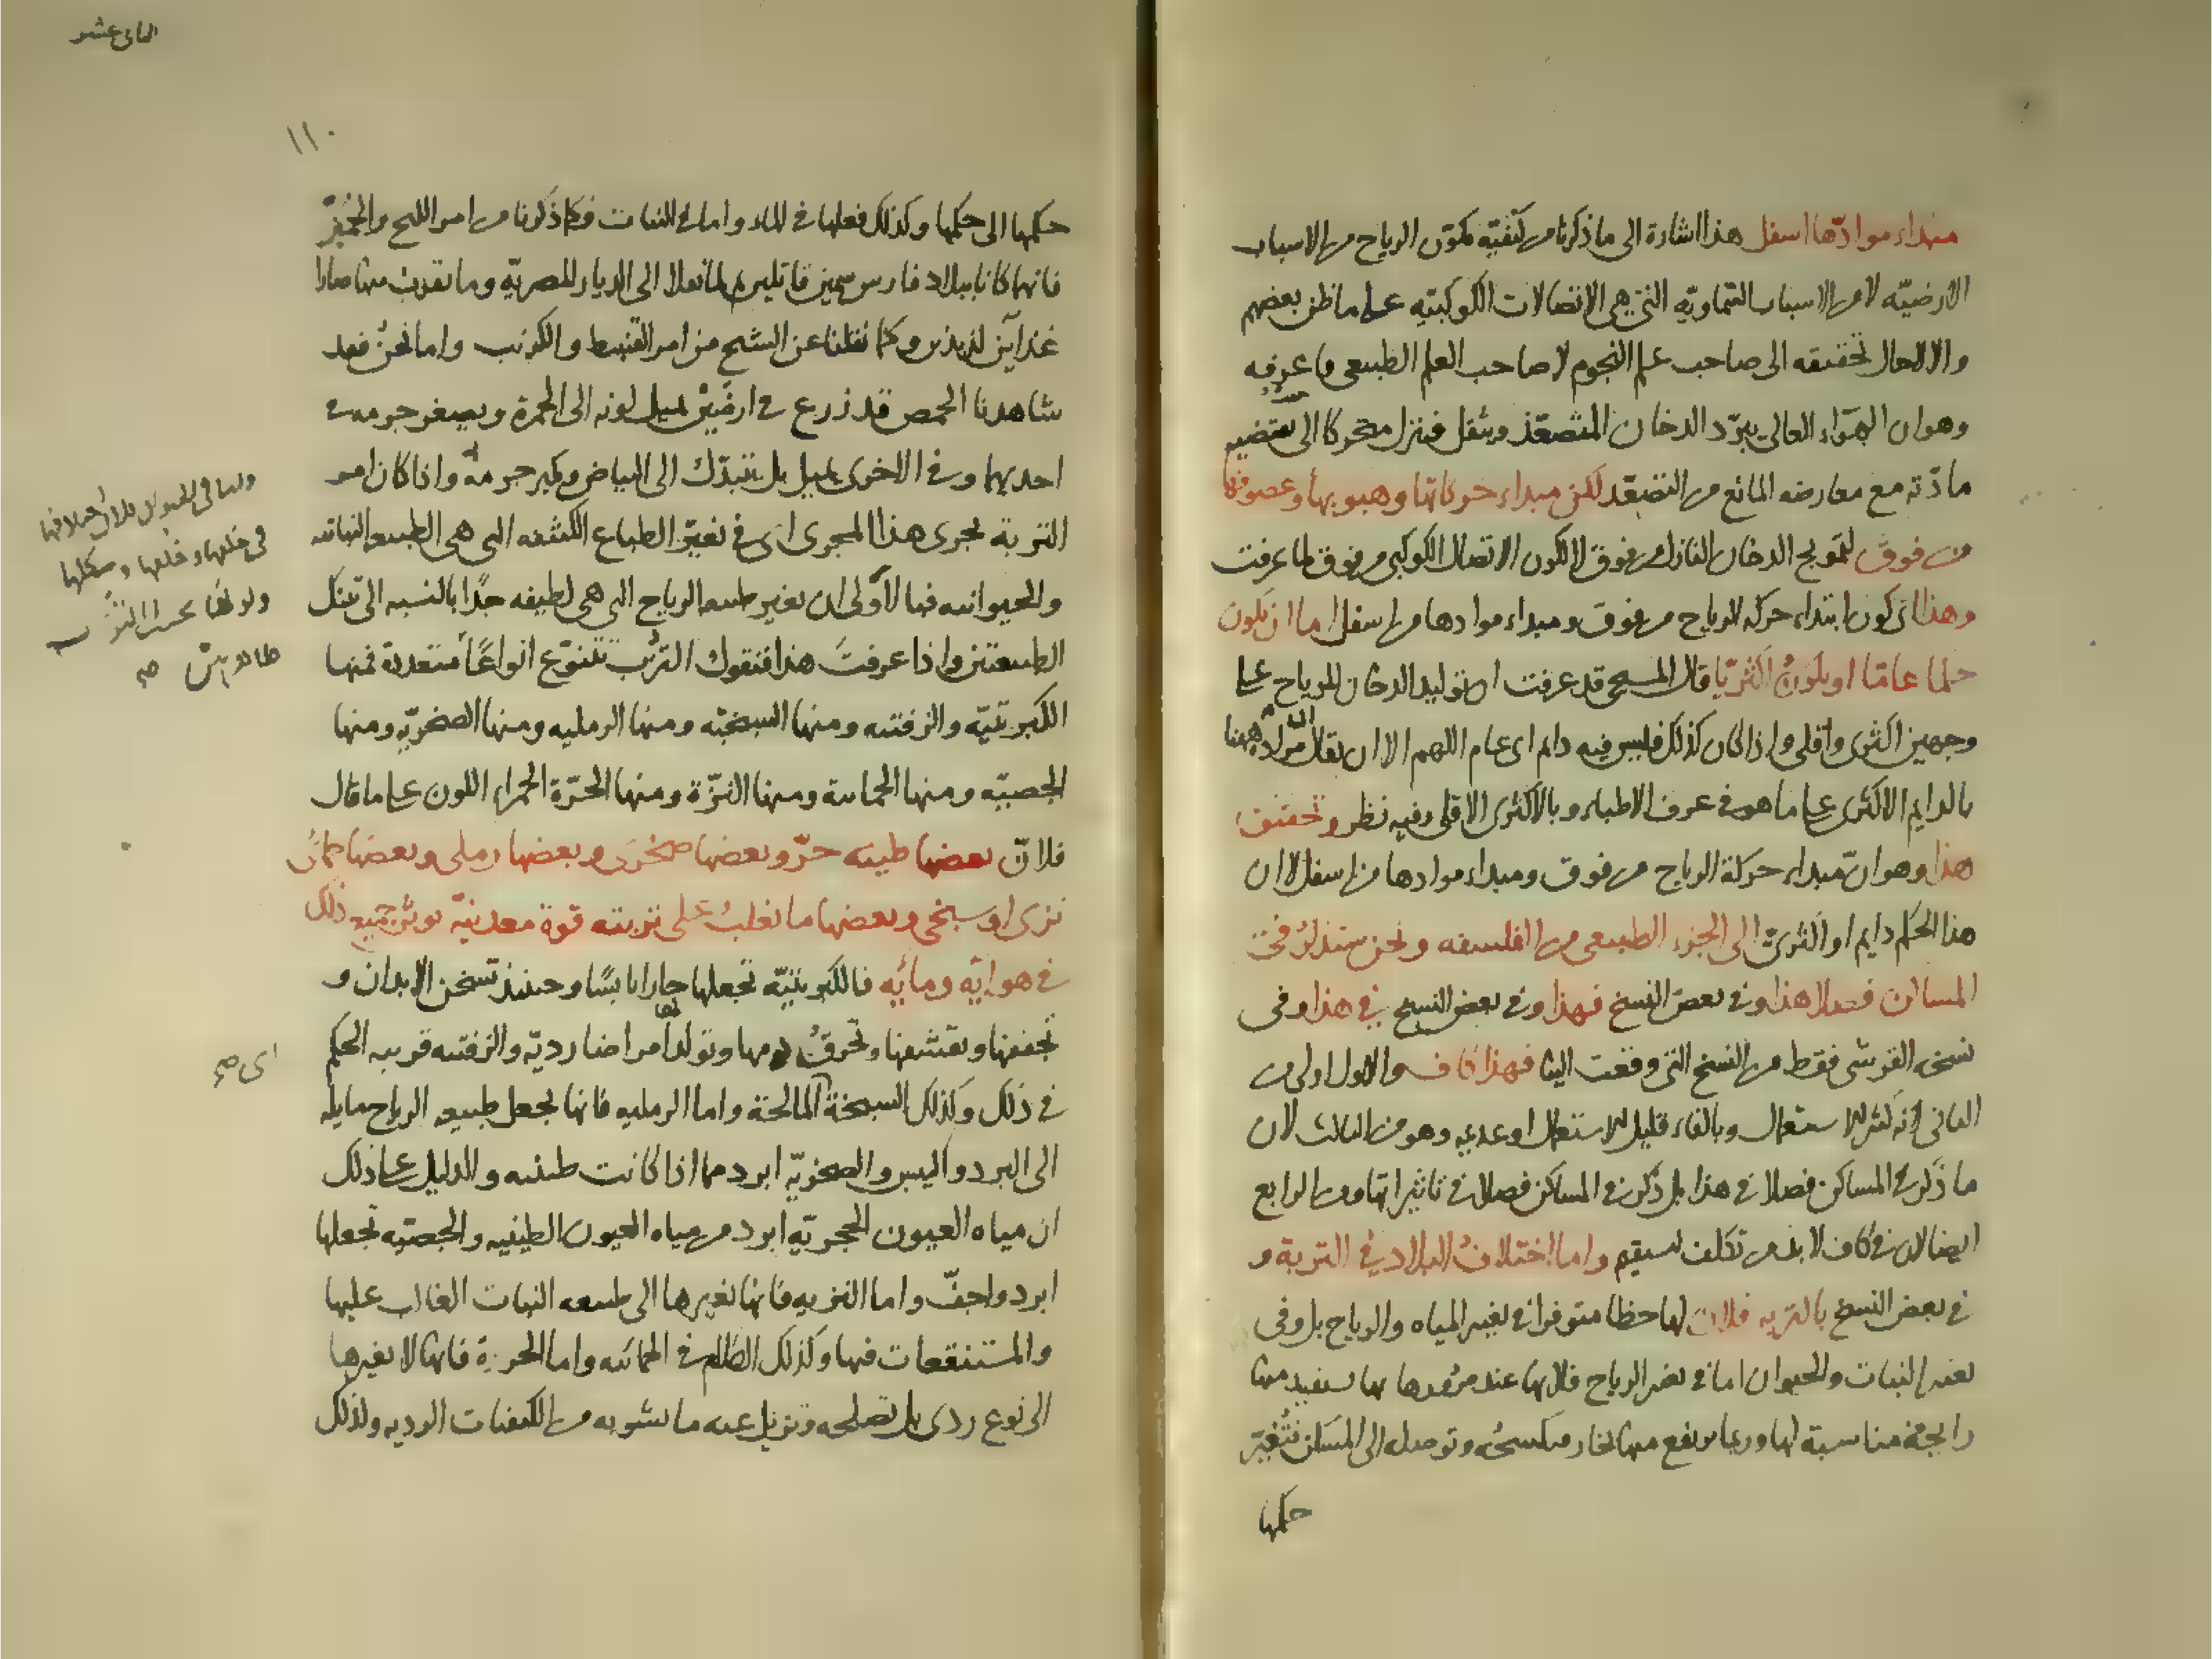 مبداء موادّها اسفل هذا اشارة الى ما ذكرنا من كيفيّة تكوّن الرياح من الاسباب
الارضيّة لا من الاسباب السّماويّة التى هى الاتصالات الكوكبيّة على ما ظن بعضهم
والا لاحال تحقيقه الى صاحب علم النجوم لا صاحب العلم الطبيعى وما عرفته
وهو ان الهواء العالى يبرّد الدخان المتصعّد ويثقل فينزل متحركا الى
مادّته مع معارضه المانع من التصعّد لكن مبداء حركاتها وهبوبها وعصوفها
من فوق لتمويج الدخان النازل من فوق لا لكون الاتصال الكوكبى من فوق لما عرفت
وهذا اى كون ابتداء حركه الرياح من فوق ومبداء موادها من اسفل اما ان يكون
حكما عامّا او يكون اكثريّا قال المسيحى قد عرفت ان توليد الدخان للرياح على
وجهين اكثرى واقلى واذا كان كذلك فليس فيه دايم اى عام اللهم الا ان يقال المراد ههنا
بالدايم الاكثرى على ما هو فى عرف الاطباء وبالاكثرى الاقلى وفيه نظر وتحقيق
هذا وهو انّ مبداء حركة الرياح من فوق ومبداء موادها من اسفل لا ان
هذا الحكم دايم او اكثرىّ الى الجزء الطبيعى من الفلسفه ونحن سنذكر فى
المساكن فصلا هذا وفى بعض النسخ فهذا وفى بعض النسخ فى هذا وفى
نسخه القرشى فقط من النسخ التى وقعت الينا فهذا كاف والاول اولى من
الثانى لانه كثير الاستعمال وبالفاء قليل الاستعمال او عديمه وهو من الثالث لان
ما ذكر فى المساكن فصلا فى هذا بل ذكر فى المساكن فصلا فى تاثيراتها ومن الرابع
ايضا لان فى كاف لا بد من تكلف ليستقيم واما اختلاف البلاد فى التربة و
فى بعض النسخ بالتربه فلان لها حظا متوفرا فى تغيير المياه والرياح بل وفى
تغيير النبات والحيوان اما فى تغيير الرياح فلانها عند مرورها بها تستفيد منها
رايحة مناسبة لها وربما يرتفع منها بخار وتوصله الى المسكن فتُغيّر
حكمها
الثانى عشر
١١٠
حكمها الى حكمها وكذلك فعلها فى الماء واما فى النبات فكما ذكرنا من امر اللبخ والجُمّيز
فانهما كانا ببلاد فارس سمين قاتلين لما نقلا الى الديار المصريّة وما يقرب منها صارا
غذايَن لذيذين وكما نقلنا عن الشيخ من امر القنبيط والكرنب واما نحن فقد
شاهدنا الحمص قد زرع فى ارضَيْن يميل لونه الى الحمرة ويصغر جرمه فى
احديهما وفى الاخرى يميل بل يتبدّل الى البياض وكبر جرمه واذا كان امر
التربة يجرى هذا المجرى اى فى تغيير الطباع الكثيفه التى هى الطبيعه النباتيه
والحيوانيه فبالاَولى ان تغير طبيعه الرياح التى هى لطيفه جدًا بالنسبه الى تينك
الطبيعتين واذا عرفتَ هذا فنقول التُرَب تتنوّع انواعًا متعددة فمنها
الكبريتيّة والزفتيه ومنها السبخيّة ومنها الرمليه ومنها الصخريّه ومنها
الجصيّه ومنها الحمائية ومنها النزّة ومنها الحرّة الحمراء اللون على ما قال
فلانّ بعضها طينه حرّ وبعضها صخرى وبعضها رملى وبعضها حمائى
نزى او سبخى وبعضها ما يغلب على تربته قوة معدنيّة يوثّر جميع ذلك
فى هوايّه ومائه فالكبريتيّة تجعلها حارا يابسًا وحينئذ تسخن الابدان و
تجففها وتقشفها وتحرق دمها وتولد لها امراضا رديّه والزفتيه قريبه الحكم
فى ذلك وكذلك السبخة المالحة واما الرمليه فانها تجعل طبيعه الرياح مايله
الى البرد واليبس والصخريّة ابرد مما اذا كانت طينيه والدليل على ذلك
ان مياه العيون الحجريّة ابرد من مياه العيون الطينيه والجصيّه تجعلها
ابرد واجفّ واما النزيه فانها تغيرها الى طبيعه النبات الغالب عليها
والمستنقعات فيها وكذلك الكلام فى الحمائيه واما الحرية فانها لا تغيرها
الى نوع ردى بل تصلحه وتزيل عنه ما يشوبه من الكيفيات الرديه ولذلك
واما فى الحيوان فلان اختلافها
فى خلقها وخلقها وشكلها
ولونها بحسب التُرَب
ظاهر بيّن صح
اى صح